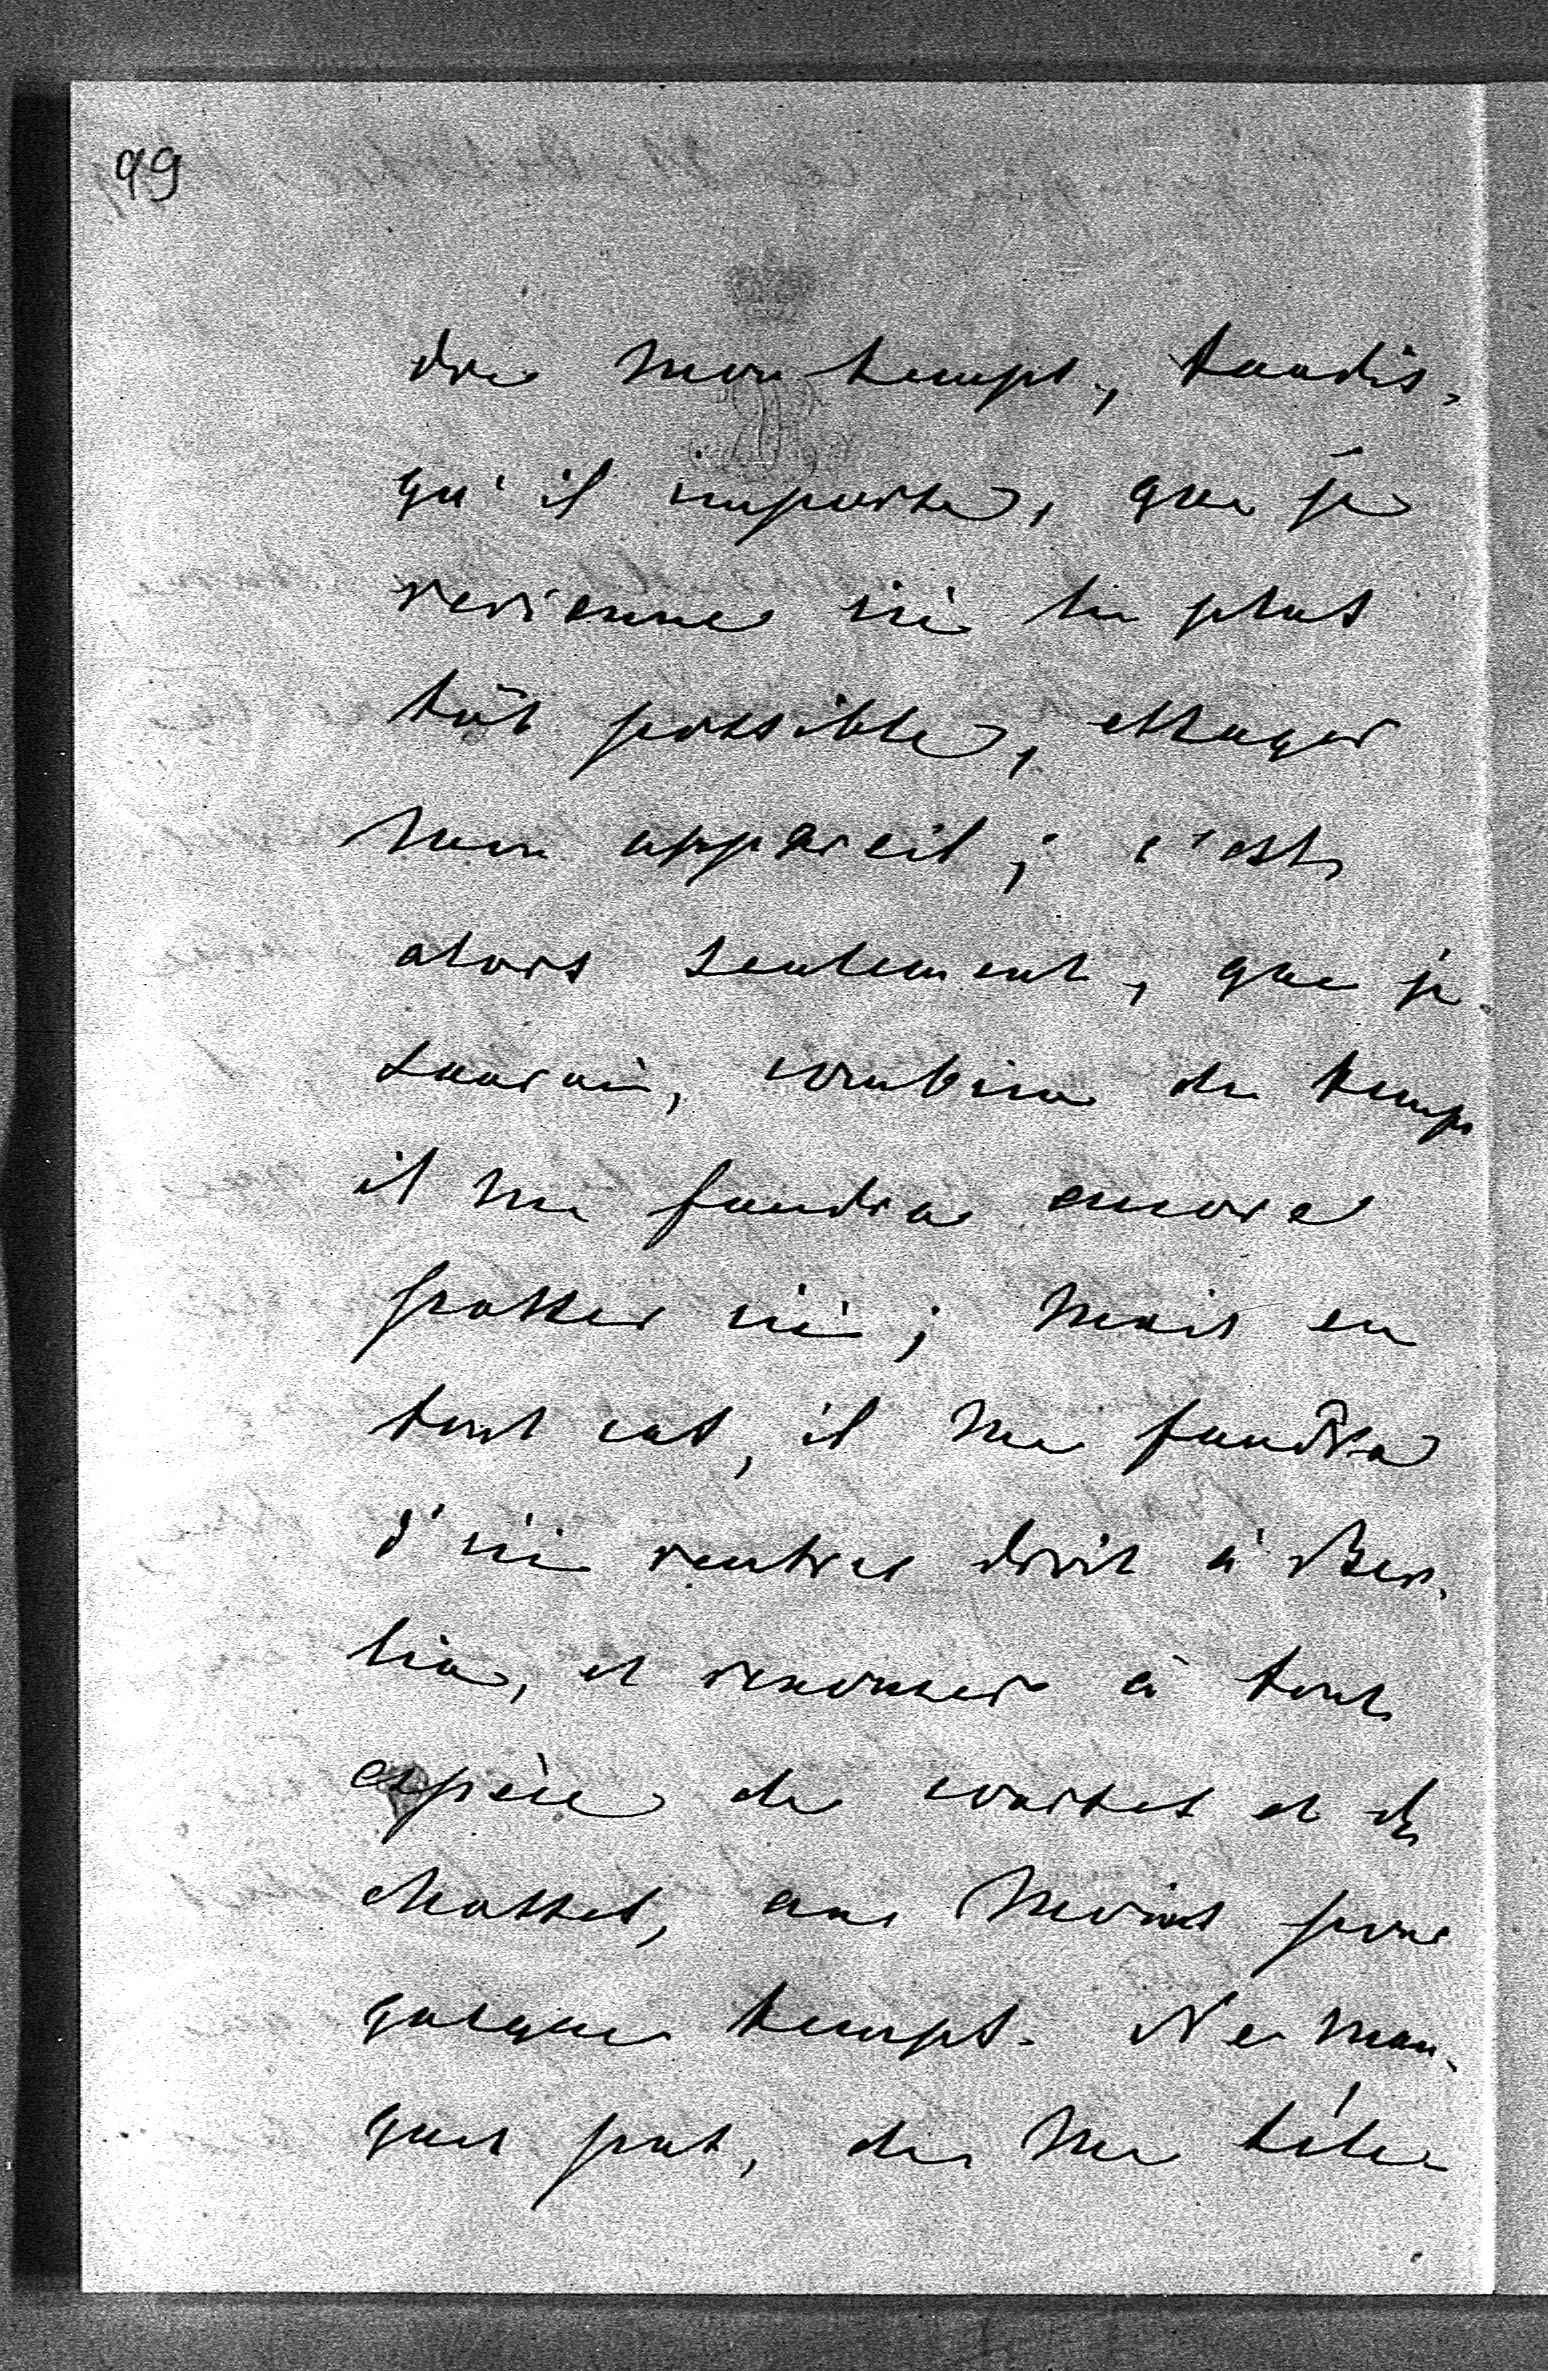 99
dre mon temps, tandis-
qu'il importe, que je
revienne ici le plus
tôt possible, essayer
mon appareil; c'est
alors seulement, que je
saurai, combien de temps
il me faudra encore
passer ici; mais en
tout cas, il me faudra
d'ici rentrer droit à Ber-
lin, et renoncer à tout
espèce de courses et de
chasses, au moins pour
quelque temps. Ne man-
quez pas, de me télé-